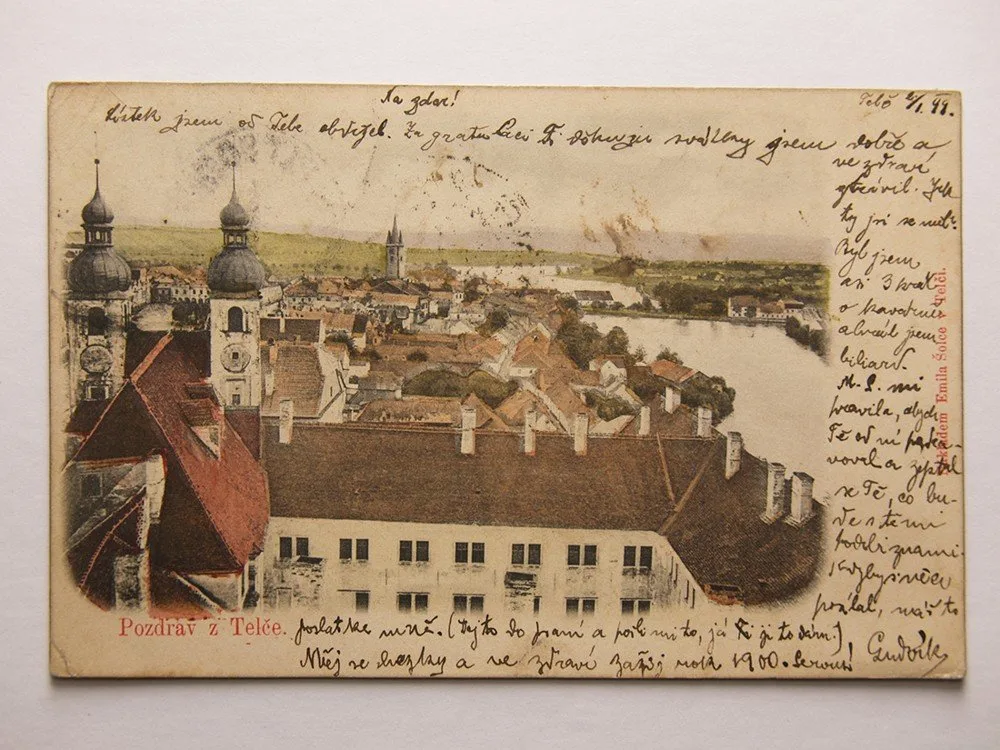 Na zdar!
lístek jsem od Tebe obdržel. Za gratulaci Ti děkuju svátky jsem dobře a
ve zdraví
ztrávil. Jak
ty jsi se měl?
Byl jsem
asi 3 krát
v kavárně
a hrál jsem
biliard.
M. S. mi
pravila, abych
Tě od ní
a zeptal
se Tě, co bu-
de s těmi
známi-
pozlal, máš to
poslat ke mně. (Dej to do psaní a pošli mi to, já ji to dám.)
Měj se hezky a ve zdraví zažij rok 1900. Servus!
Ludvík
Pozdrav z Telče.
Nákladem Emila Šolce v Telči.